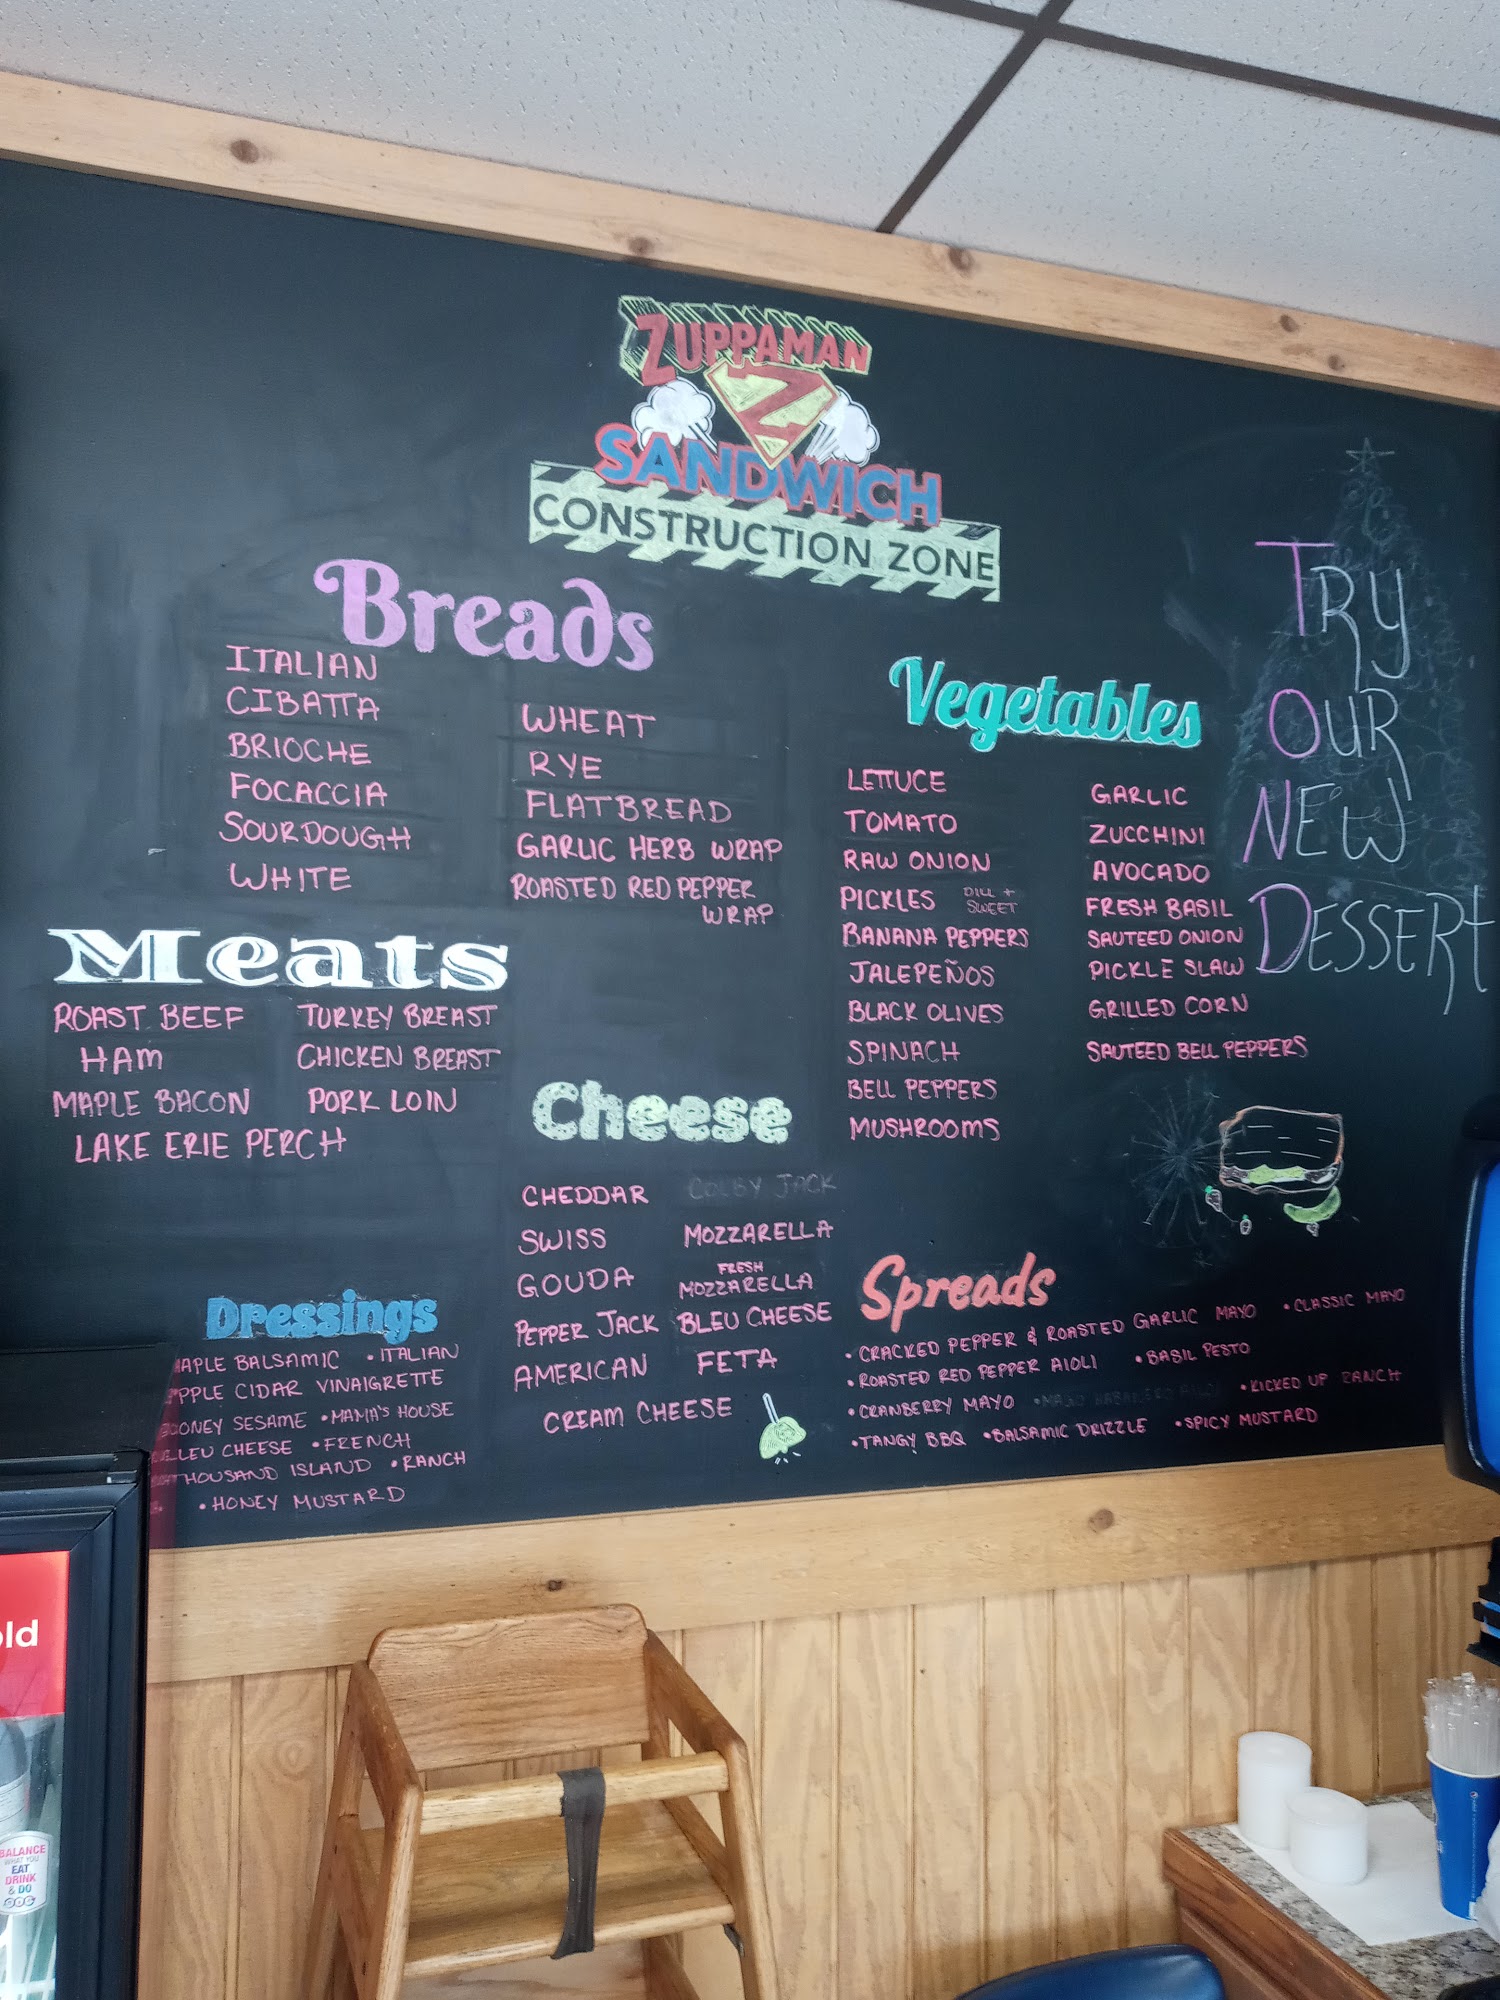 ZUPPAMAN
Z
SANDWICH
CONSTRUCTION ZONE
Breads
ITALIAN
CIBATTA
BRIOCHE
FOCACCIA
SOURDOUGH
WHITE
WHEAT
RYE
FLATBREAD
GARLIC HERB WRAP
ROASTED RED PEPPER
WRAP
Vegetables
LETTUCE
TOMATO
RAW ONION
PICKLES DILL +
SWEET
BANANA PEPPERS
JALEPEÑOS
BLACK OLIVES
SPINACH
BELL PEPPERS
MUSHROOMS
GARLIC
ZUCCHINI
AVOCADO
FRESH BASIL
SAUTEED ONION
PICKLE SLAW
GRILLED CORN
SAUTEED BELL PEPPERS
TRY
OUR
NEW
DESSERT
Meats
ROAST BEEF
HAM
MAPLE BACON
LAKE ERIE PERCH
TURKEY BREAST
CHICKEN BREAST
PORK LOIN
Cheese
CHEDDAR
SWISS
GOUDA
PEPPER JACK
AMERICAN
CREAM CHEESE
COLBY JACK
MOZZARELLA
FRESH
MOZZARELLA
BLEU CHEESE
FETA
Dressings
MAPLE BALSAMIC • ITALIAN
APPLE CIDAR VINAIGRETTE
HONEY SESAME • MAMA'S HOUSE
BLEU CHEESE • FRENCH
THOUSAND ISLAND • RANCH
• HONEY MUSTARD
Spreads
• CRACKED PEPPER & ROASTED GARLIC MAYO • CLASSIC MAYO
• ROASTED RED PEPPER AIOLI • BASIL PESTO
• CRANBERRY MAYO • KICKED UP RANCH
• TANGY BBQ • BALSAMIC DRIZZLE • SPICY MUSTARD
old
BALANCE
WHAT YOU
EAT
DRINK
& DO